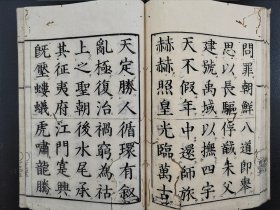 問罪朝鮮八道即舉
思以長驅俘馘朱父
建號禹域以撫四字
天不假年中還師旅
赫赫照皇光臨萬古
天定勝人循環有叙
亂極復治禍窮為祜
上之聖朝後水尾承
其征夷府江門寔興
既壓螻蟻虎嘯龍騰